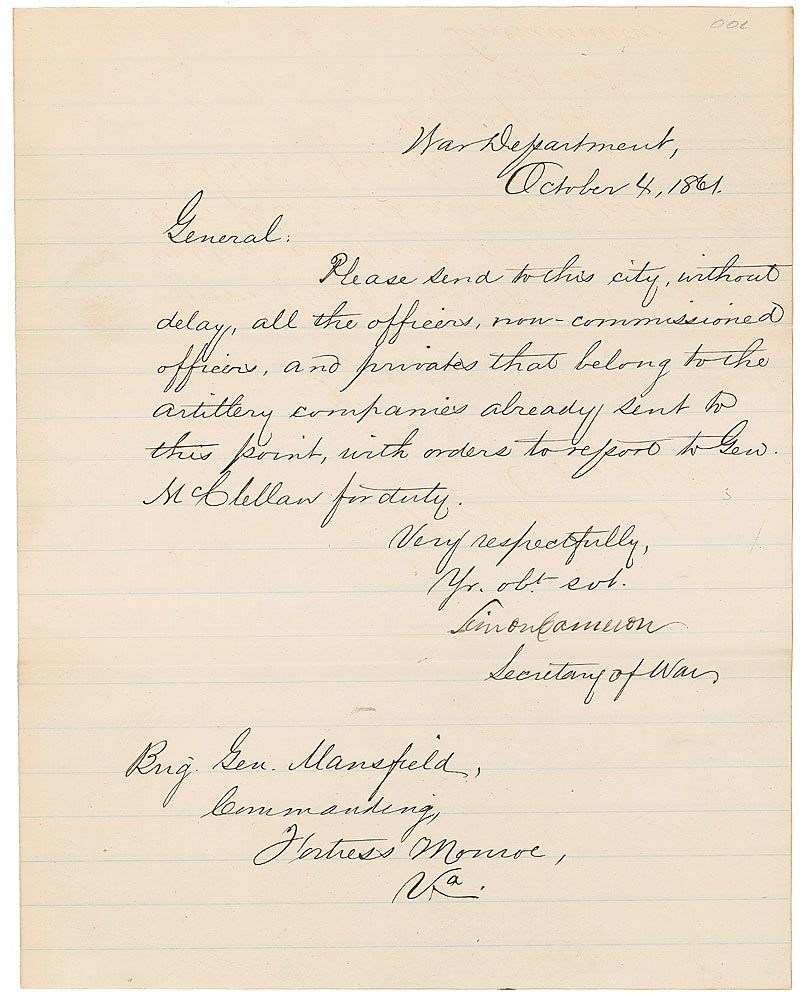 War Department,
October 4, 1861.
General:
Please send to this city, without
delay, all the officers, non-commissioned
officers, and privates that belong to the
artillery companies already sent to
this point, with orders to report to Gen.
McClellan for duty.
Very respectfully,
Yr. obt. svt.
Simon Cameron
Secretary of War
Brig. Gen. Mansfield,
Commanding,
Fortress Monroe,
Va.